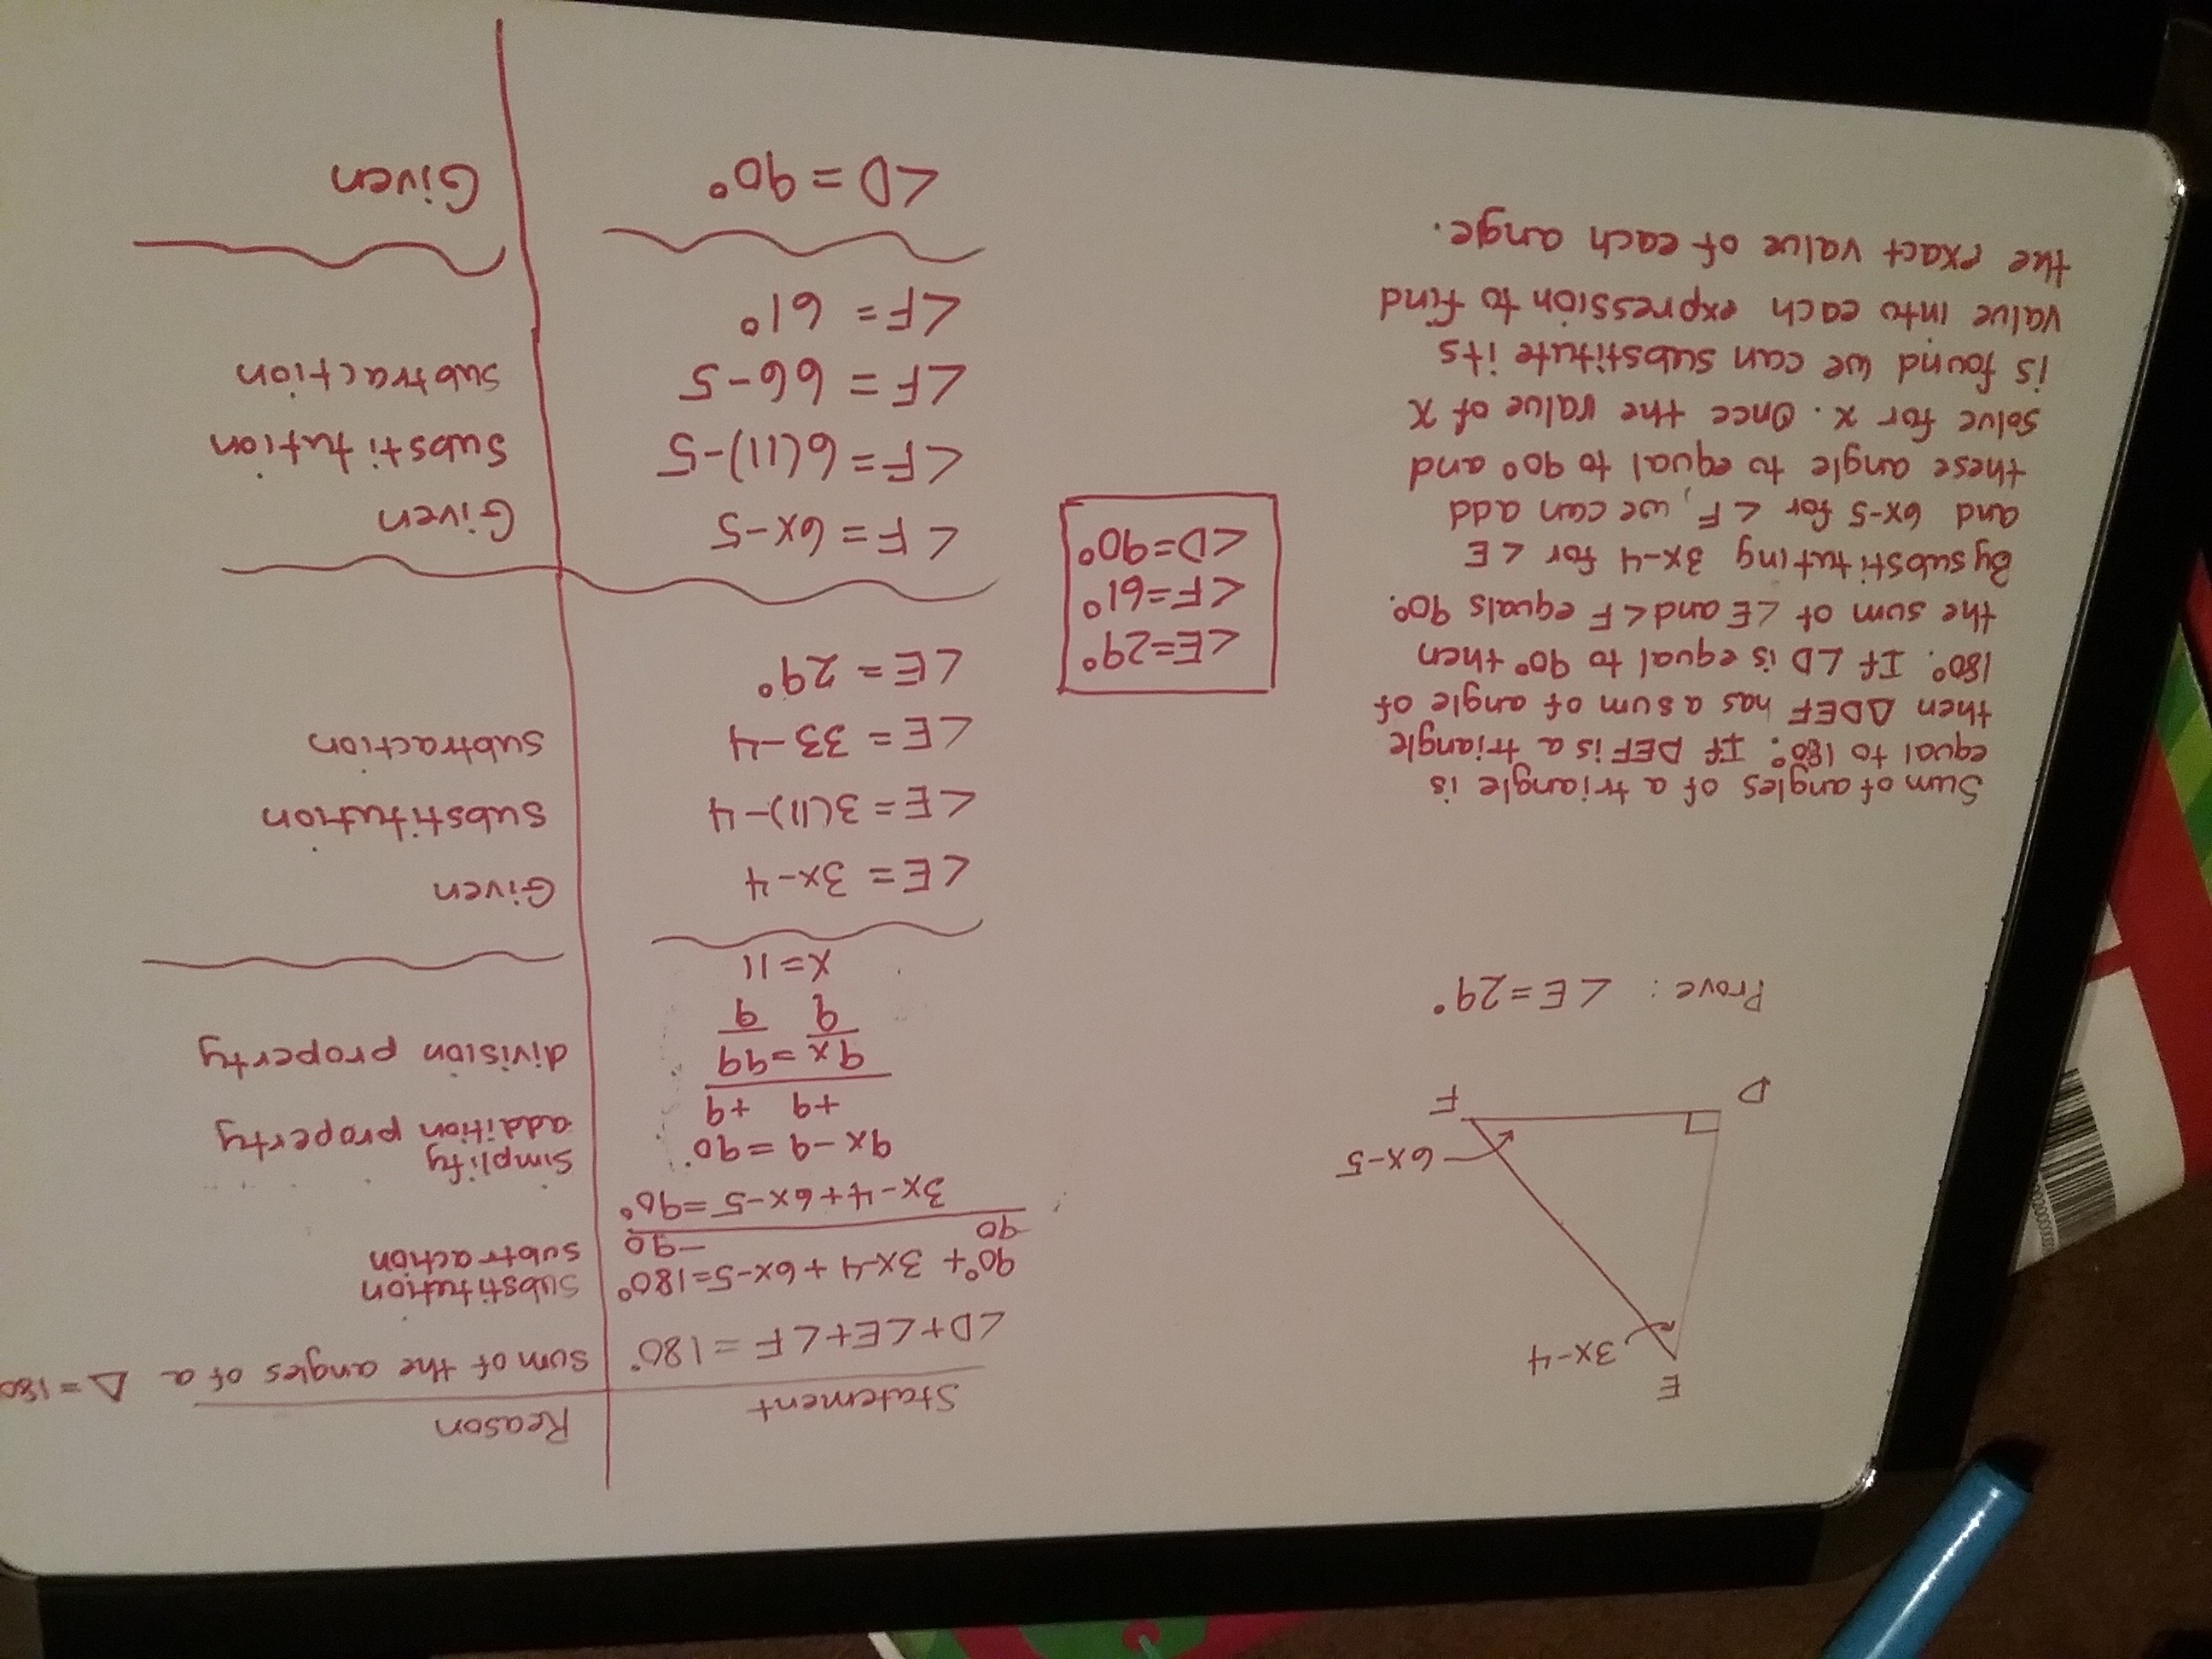 E
3x-4
6x-5
D
F
Prove: <E=29°
Sum of angles of a triangle is
equal to 180°. If DEF is a triangle
then ΔDEF has a sum of angle of
180°. If ∠D is equal to 90° then
the sum of ∠E and <F equals 90°.
By substituting 3x-4 for <E
and 6x-5 for <F, we can add
these angle to equal to 90° and
solve for x. Once the value of x
is found we can substitute its
value into each expression to find
the exact value of each ange.
<E=29°
<F=61°
<D=90°
Statement
Reason
∠D+∠E+∠F=180°
sum of the angles of a Δ=180
90°+3x-4+6x-5=180°
Substitution
90 -90
subtraction
3x-4+6x-5=90°
9x-9=90°
Simplify
+9 +9
addition property
9x=99
division property
9 9
x=11
<E=3x-4
Given
<E=3(11)-4
Substitution
<E=33-4
subtraction
<E=29°
<F=6x-5
Given
<F=6(11)-5
Substitution
<F=66-5
subtraction
<F=61°
<D=90°
Given